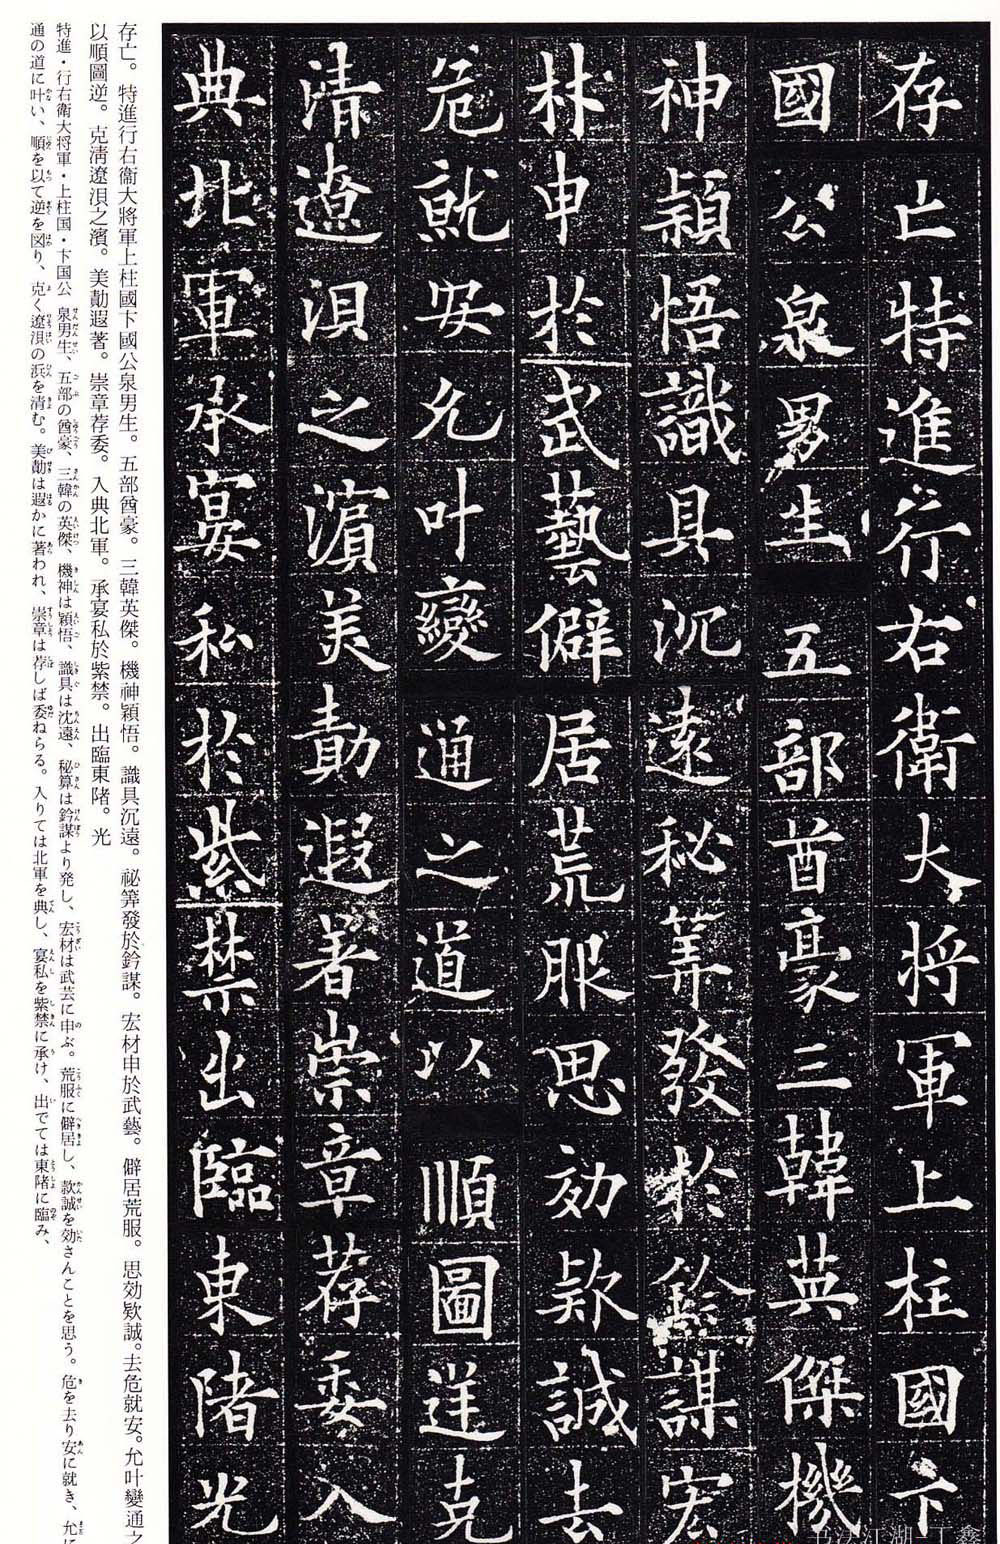 存亡特進行右衛大将軍上柱國卞
國公泉男生五部酋豪三韓英傑機
神穎悟識具沉遠秘筭發於鈐謀宏
材申於武藝僻居荒服思効欵誠去
危就安允叶變通之道以順圖逆克
清遼浿之濱美勣遐著崇章荐委入
典北軍承宴私於紫禁出臨東陼光
存亡。特進行右衞大將軍上柱國卞國公泉男生。五部酋豪。三韓英傑。機神穎悟。識具沉遠。祕筭發於鈐謀。宏材申於武藝。僻居荒服。思効欵誠。去危就安。允叶變通之
以順圖逆。克清遼浿之濱。美勣遐著。崇章荐委。入典北軍。承宴私於紫禁。出臨東陼。光
特進・行右衛大将軍・上柱国・卞国公 泉男生、五部の酋豪、三韓の英傑、機神は穎悟、識具は沈遠、秘算は鈐謀より発し、宏材は武芸に申ぶ。荒服に僻居し、款誠を効さんことを思う。危を去り安に就き、允に
通の道に叶い、順を以て逆を図り、克く遼浿の浜を清む。美勣は遐かに著われ、崇章は荐しば委ねらる。入りては北軍を典し、宴私を紫禁に承け、出でては東陼に臨み、
书法江湖-丁鑫